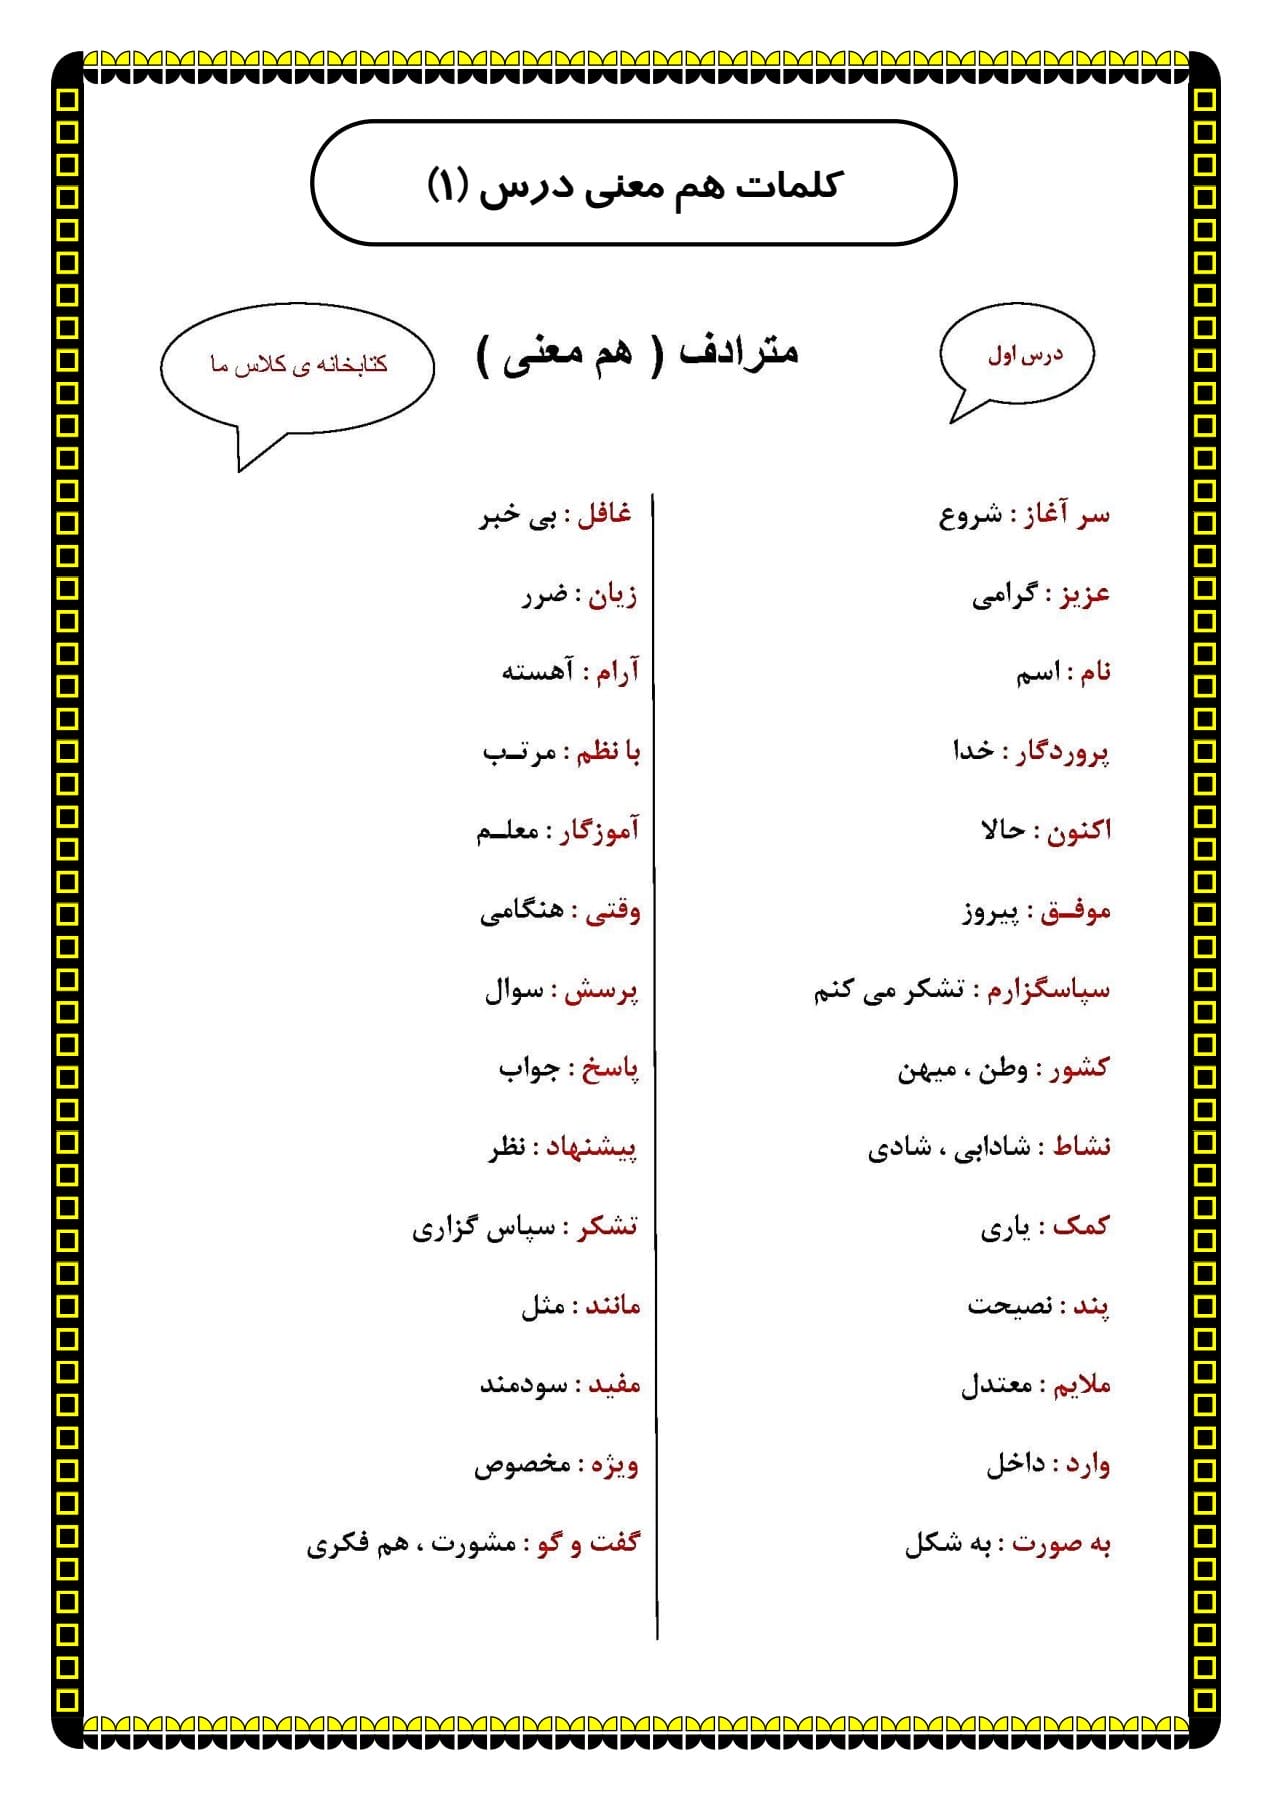 کلمات هم معنی درس (۱)
درس اول
مترادف ( هم معنی )
کتابخانه ی کلاس ما
سر آغاز : شروع
عزیز : گرامی
نام : اسم
پروردگار : خدا
اکنون : حالا
موفـق : پیروز
سپاسگزارم : تشکر می کنم
کشور : وطن ، میهن
نشاط : شادابی ، شادی
کمک : یاری
پند : نصیحت
ملایم : معتدل
وارد : داخل
به صورت : به شکل
غافل : بی خبر
زیان : ضرر
آرام : آهسته
با نظم : مرتـب
آموزگار : معلـم
وقتی : هنگامی
پرسش : سوال
پاسخ : جواب
پیشنهاد : نظر
تشکر : سپاس گزاری
مانند : مثل
مفید : سودمند
ویژه : مخصوص
گفت و گو : مشورت ، هم فکری